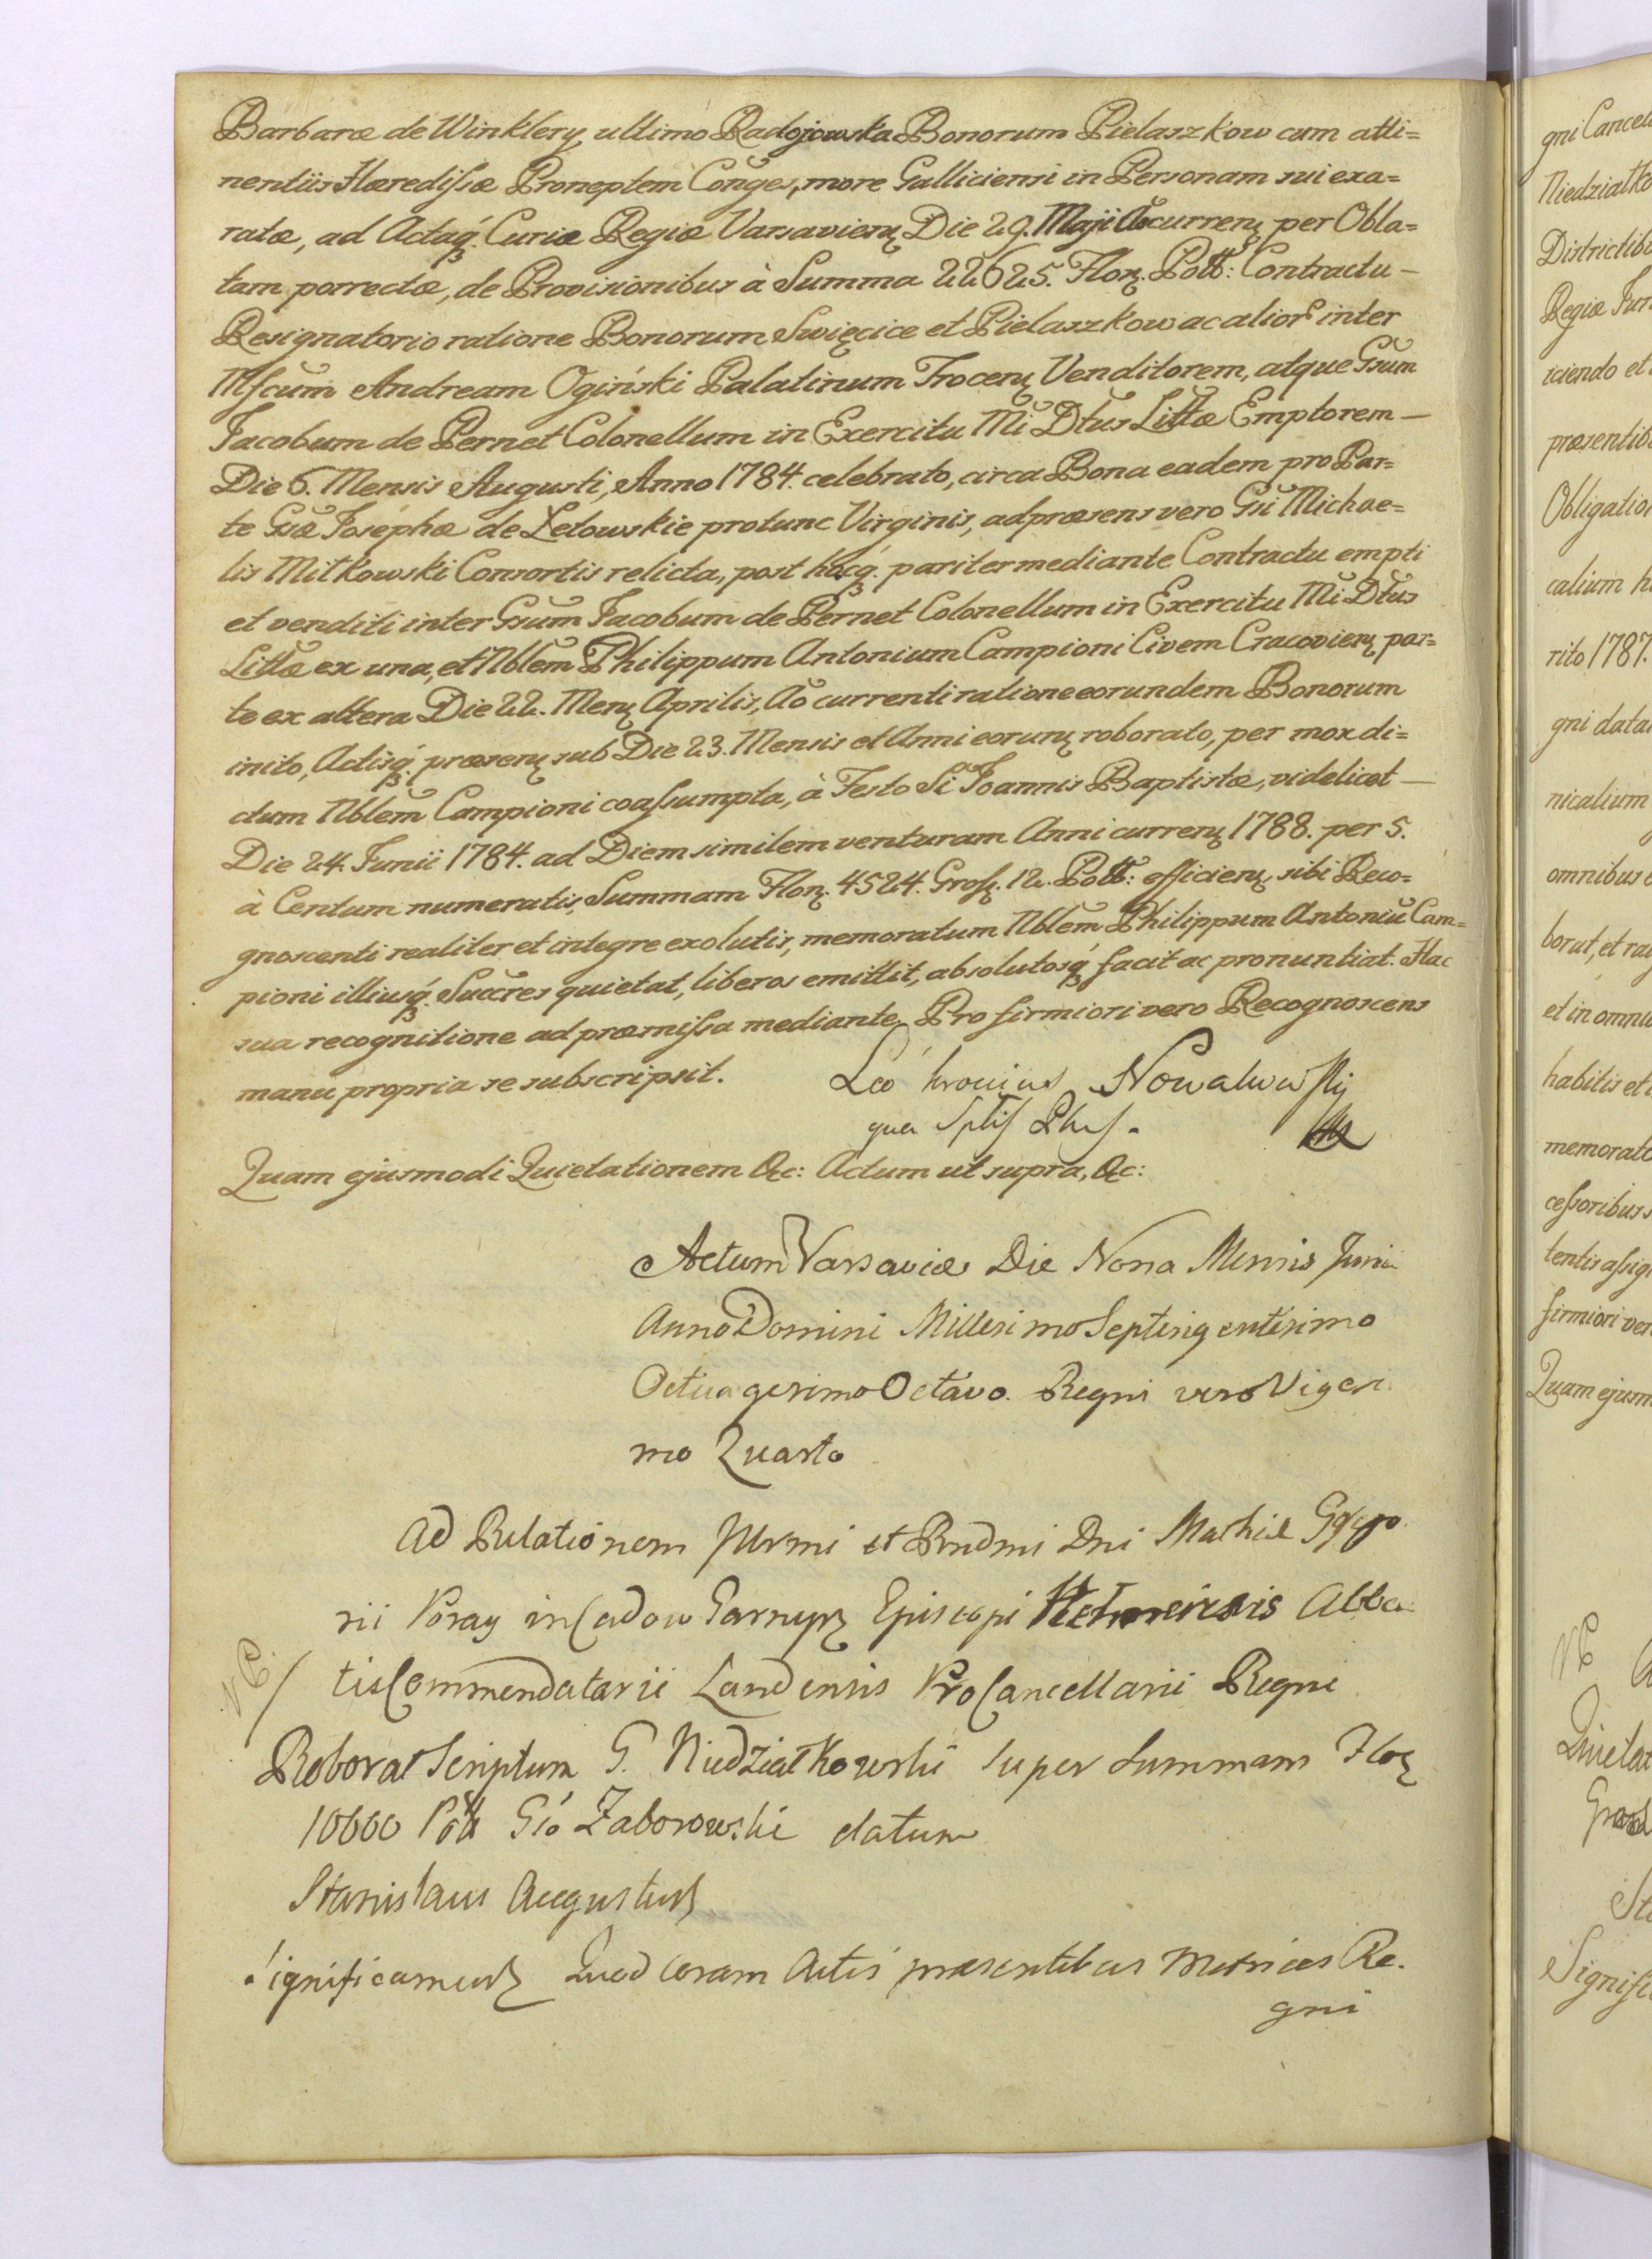 Barbaræ de Winklery ultimo Radojowska Bonorum Pielaszkow cum atti=
nentiis Hæredissæ Proneptem Conges, more Galliciensi in Personam sui exa=
ratæ, ad Actaq́ʒ Curiæ Regiæ Varsavienʒ Die 29. Maji Ao currenʒ per Obla=
tam porrectæ, de Provisionibus à Summa 22625. Florʒ. Poll: Contractu –
Resignatorio ratione Bonorum Swięcice et Pielaszkow ac alior inter
Mfcum Andream Ogiński Palatinum Trocenʒ Venditorem, atque Gsum
Jacobum de Pernet Colonellum in Exercitu Mi Dtus Littæ Emptorem –
Die 6. Mensis Augusti, Anno 1784. celebrato, circa Bona eadem pro Par=
te Gsæ Josephæ de Łetowskie protunc Virginis, ad præsens vero Gsi Michae=
lis Mitkowski Consortis relicta, post hæcq́ʒ. pariter mediante Contractu empti
et venditi inter Gsum Jacobum de Pernet Colonellum in Exercitu Mi Dtus
Littæ ex una, et Nblem Philippum Antonium Campioni Civem Cracovienʒ par=
te ex altera Die 22. Menʒ Aprilis, Ao currenti ratione eorundem Bonorum
inito, Actisq́ʒ. præsenʒ sub Die 23. Mensis et Anni eorunʒ roborato, per mox di=
ctum Nblem Campioni coassumpta, à Festo Si Joannis Baptistæ, videlicet –
Die 24. Junii 1784. ad Diem similem venturam Anni currenʒ 1788. per 5.
à Centum numeratis, Summam Florʒ. 4524. Grosʒ. 12. Poll: efficienʒ sibi Reco=
gnoscenti realiter et integre exolutis, memoratum Nblem Philippum Antoniū Cam=
pioni illiusq́ʒ. Succres quietat, liberos emittit, absolutosq́ʒ facit ac pronuntiat. Hac
sua recognitione ad præmissa mediante. Pro firmiori vero Recognoscens
manu propria se subscripsit. Nowalwsky
Quam ejusmodi Quietationem &c: Actum ut supra, &c:
Actum Varsaviæ Die Nona Mensis Junii
Anno Domini Millesimo Septingentesimo
Octuagesimo Octavo. Regni vero Vigesi
mo Quarto
Ad Relationem Illrmi et Rndmi Dni Mathiæ Grego
rii Poray in Cadow Garnysʒ Episcopi Abba
tis Commendatarii Landensis ProCancellarii Regni
NB. / Roborat Scriptum G. Niedziałkowski super Summam Florʒ
10000 Poll Gso Zaborowski datum
Stanislaus Augustus
Significamus Quod coram Actis præsentibus Metrices Re.
gni
gni Cancell
Niedziałko
Districtibu
Regiæ
iciendo et
præsentib
Obligatio
calium h
rito 1787.
gni data
nicalium
omnibus
borat, et
et in omni
habitis et
memorato
cessoribus
tentis assig
firmiori ver
Quam ejusm
NB
Quietat
Sta
Signific